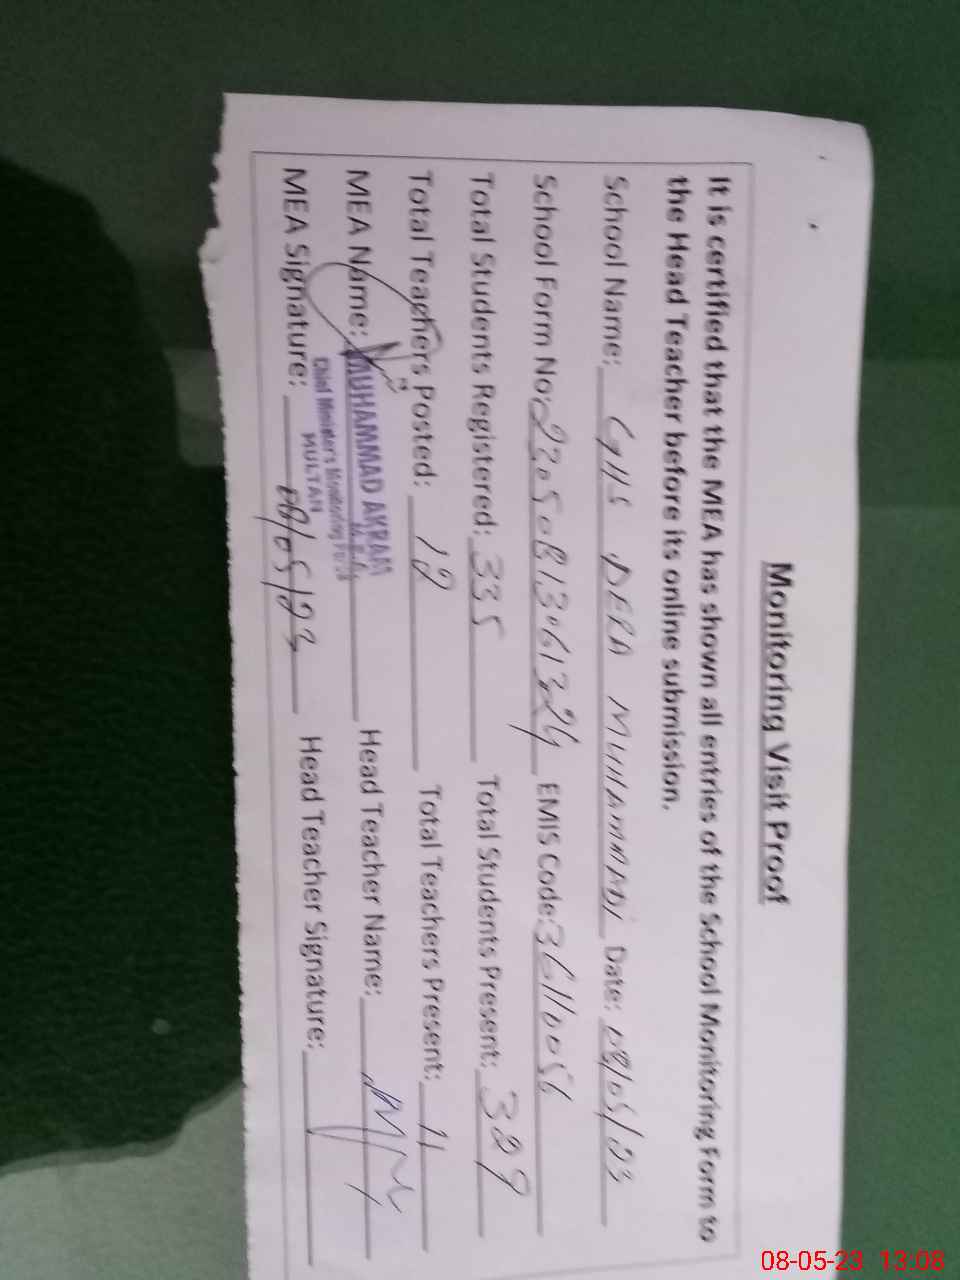 Monitoring Visit Proof
It is certified that the MEA has shown all entries of the School Monitoring Form to
the Head Teacher before its online submission.
School Name: GHS DERA MUHAMMADI Date: 08/05/23
School Form No: 22050813061324 EMIS Code: 36110056
Total Students Registered: 335 Total Students Present: 329
Total Teachers Posted: 12 Total Teachers Present: 11
MEA Name: MUHAMMAD AKRAM Head Teacher Name:
M.E.A.
Chief Minister's Monitoring Force
MULTAN
MEA Signature: 08/05/23 Head Teacher Signature:
08-05-23 13:08